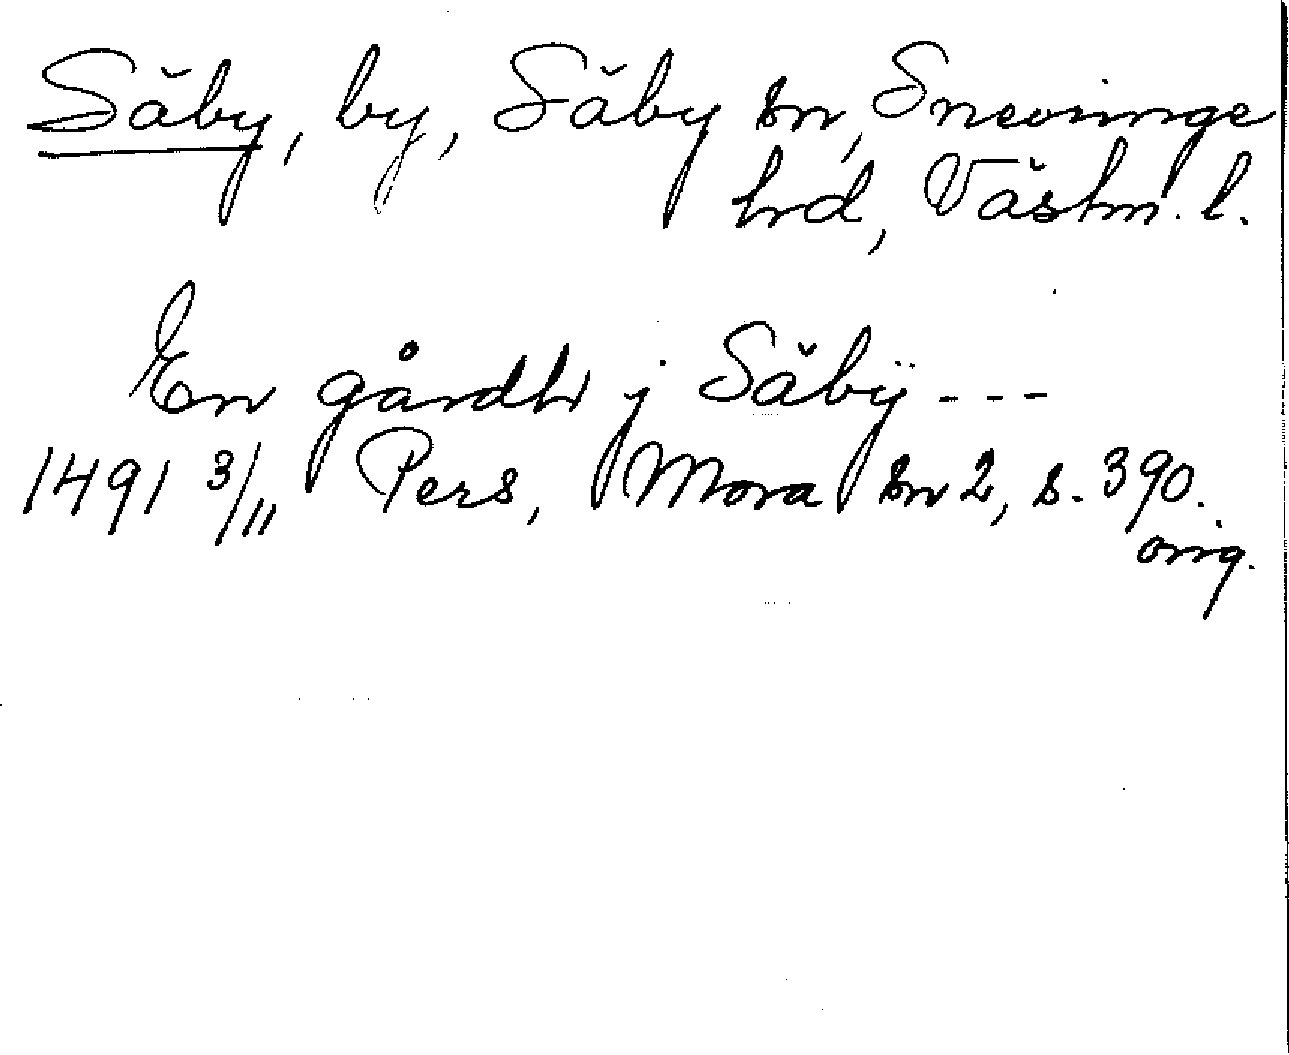 Säby, by, Säby sn, Snevringe
hrd, Västm. l.
En gårdh j Säbÿ ---
1491 3/11 Pers, Mora sn 2, s. 390.
orig.